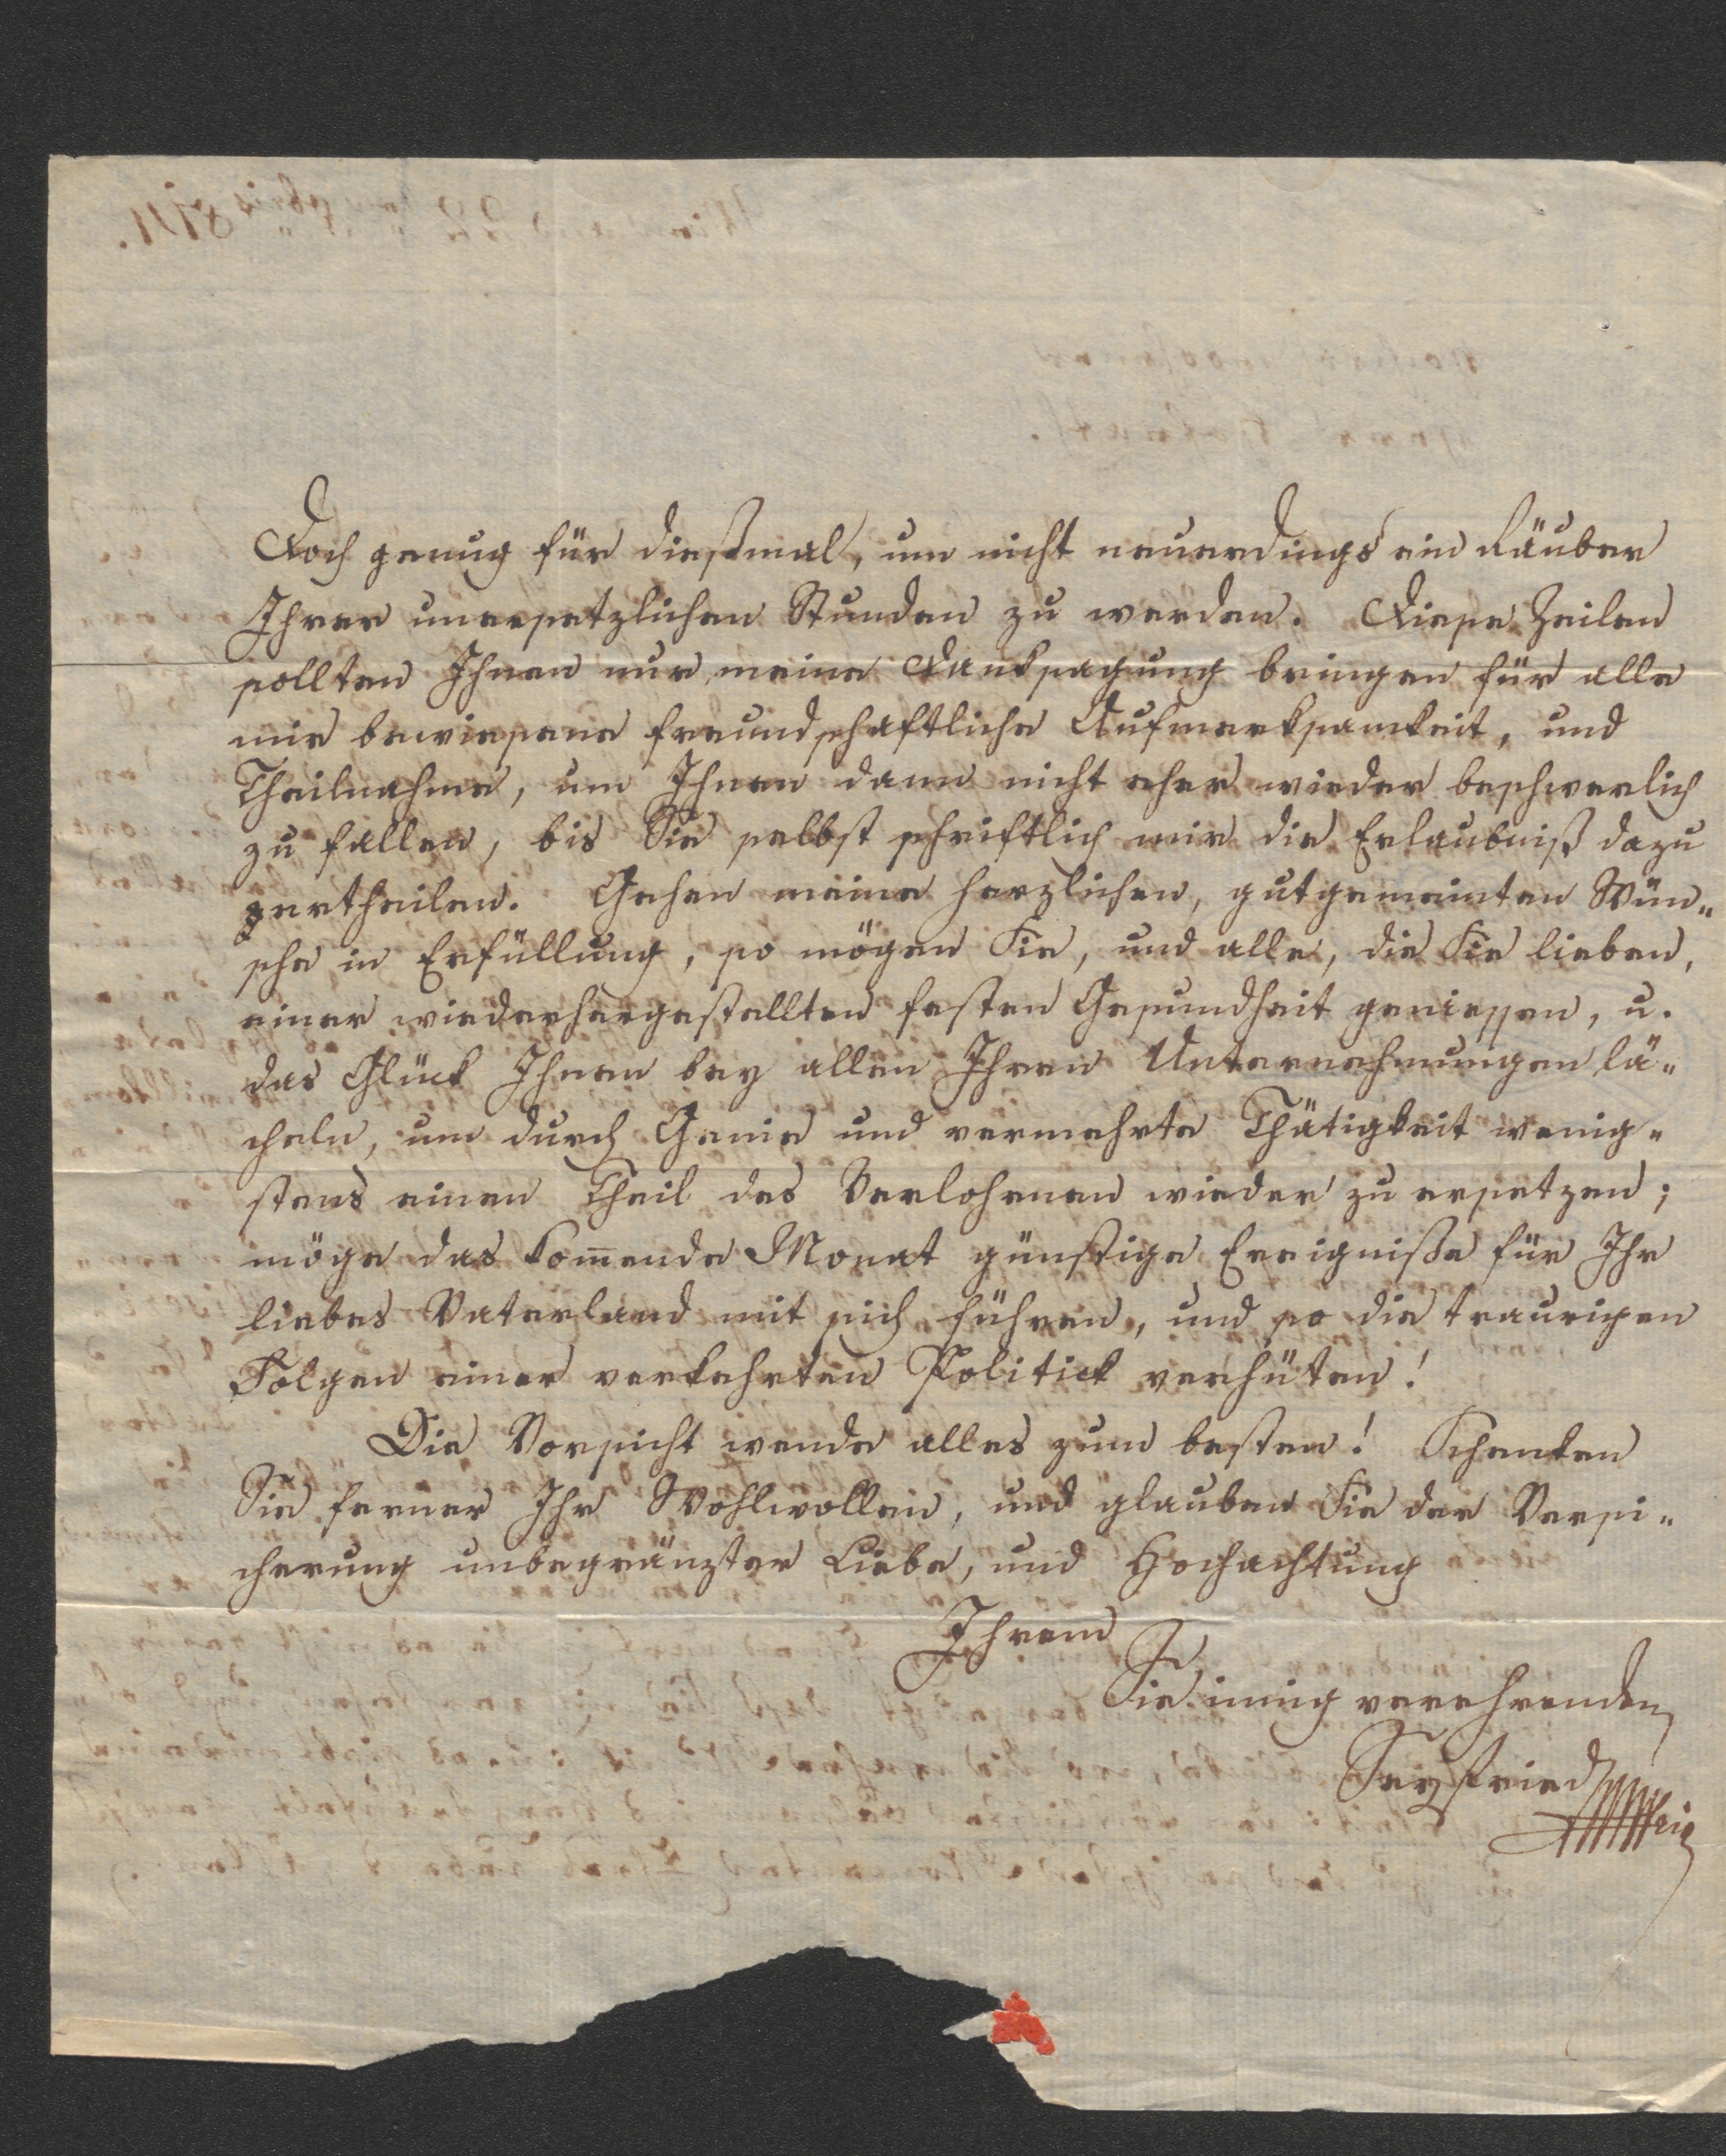 Doch genug für dießmal, um nicht neuerdings ein Räuber
Ihrer unersetzlichen Stunden zu werden. Diese Zeilen
sollten Ihnen nur meine Danksagung bringen für alle
mir bewiesene freundschaftliche Aufmerksamkeit, und
Theilnahme, um Ihnen dann nicht eher wieder beschwerlich
zu fallen, bis Sie selbst schriftlich mir die Erlaubniß dazu
ertheilen. Gehen meine herzlichen, gutgemeinten Wün„
sche in Erfüllung, so mögen Sie, und alle, die Sie lieben,
einer wiederhergestellten festen Gesundheit geniessen, u.
das Glück Ihnen bey allen Ihren Unternehmungen lä„
cheln, um durch Genie und vermehrte Thätigkeit wenig„
stens einen Theil des Verlohrnen wieder zu ersetzen;
möge das kom̅ende Monat günstige Ereigniße für Ihr
liebes Vaterland mit sich führen, und so die traurigen
Folgen einer verkehrten Politick verhüten!
Die Vorsicht wende alles zum besten! Schenken
Sie ferner Ihr Wohlwollen, und glauben Sie der Versi„
cherung unbegränzter Liebe, und Hochachtung
Ihrem
Sie innig verehrenden
Seyfried